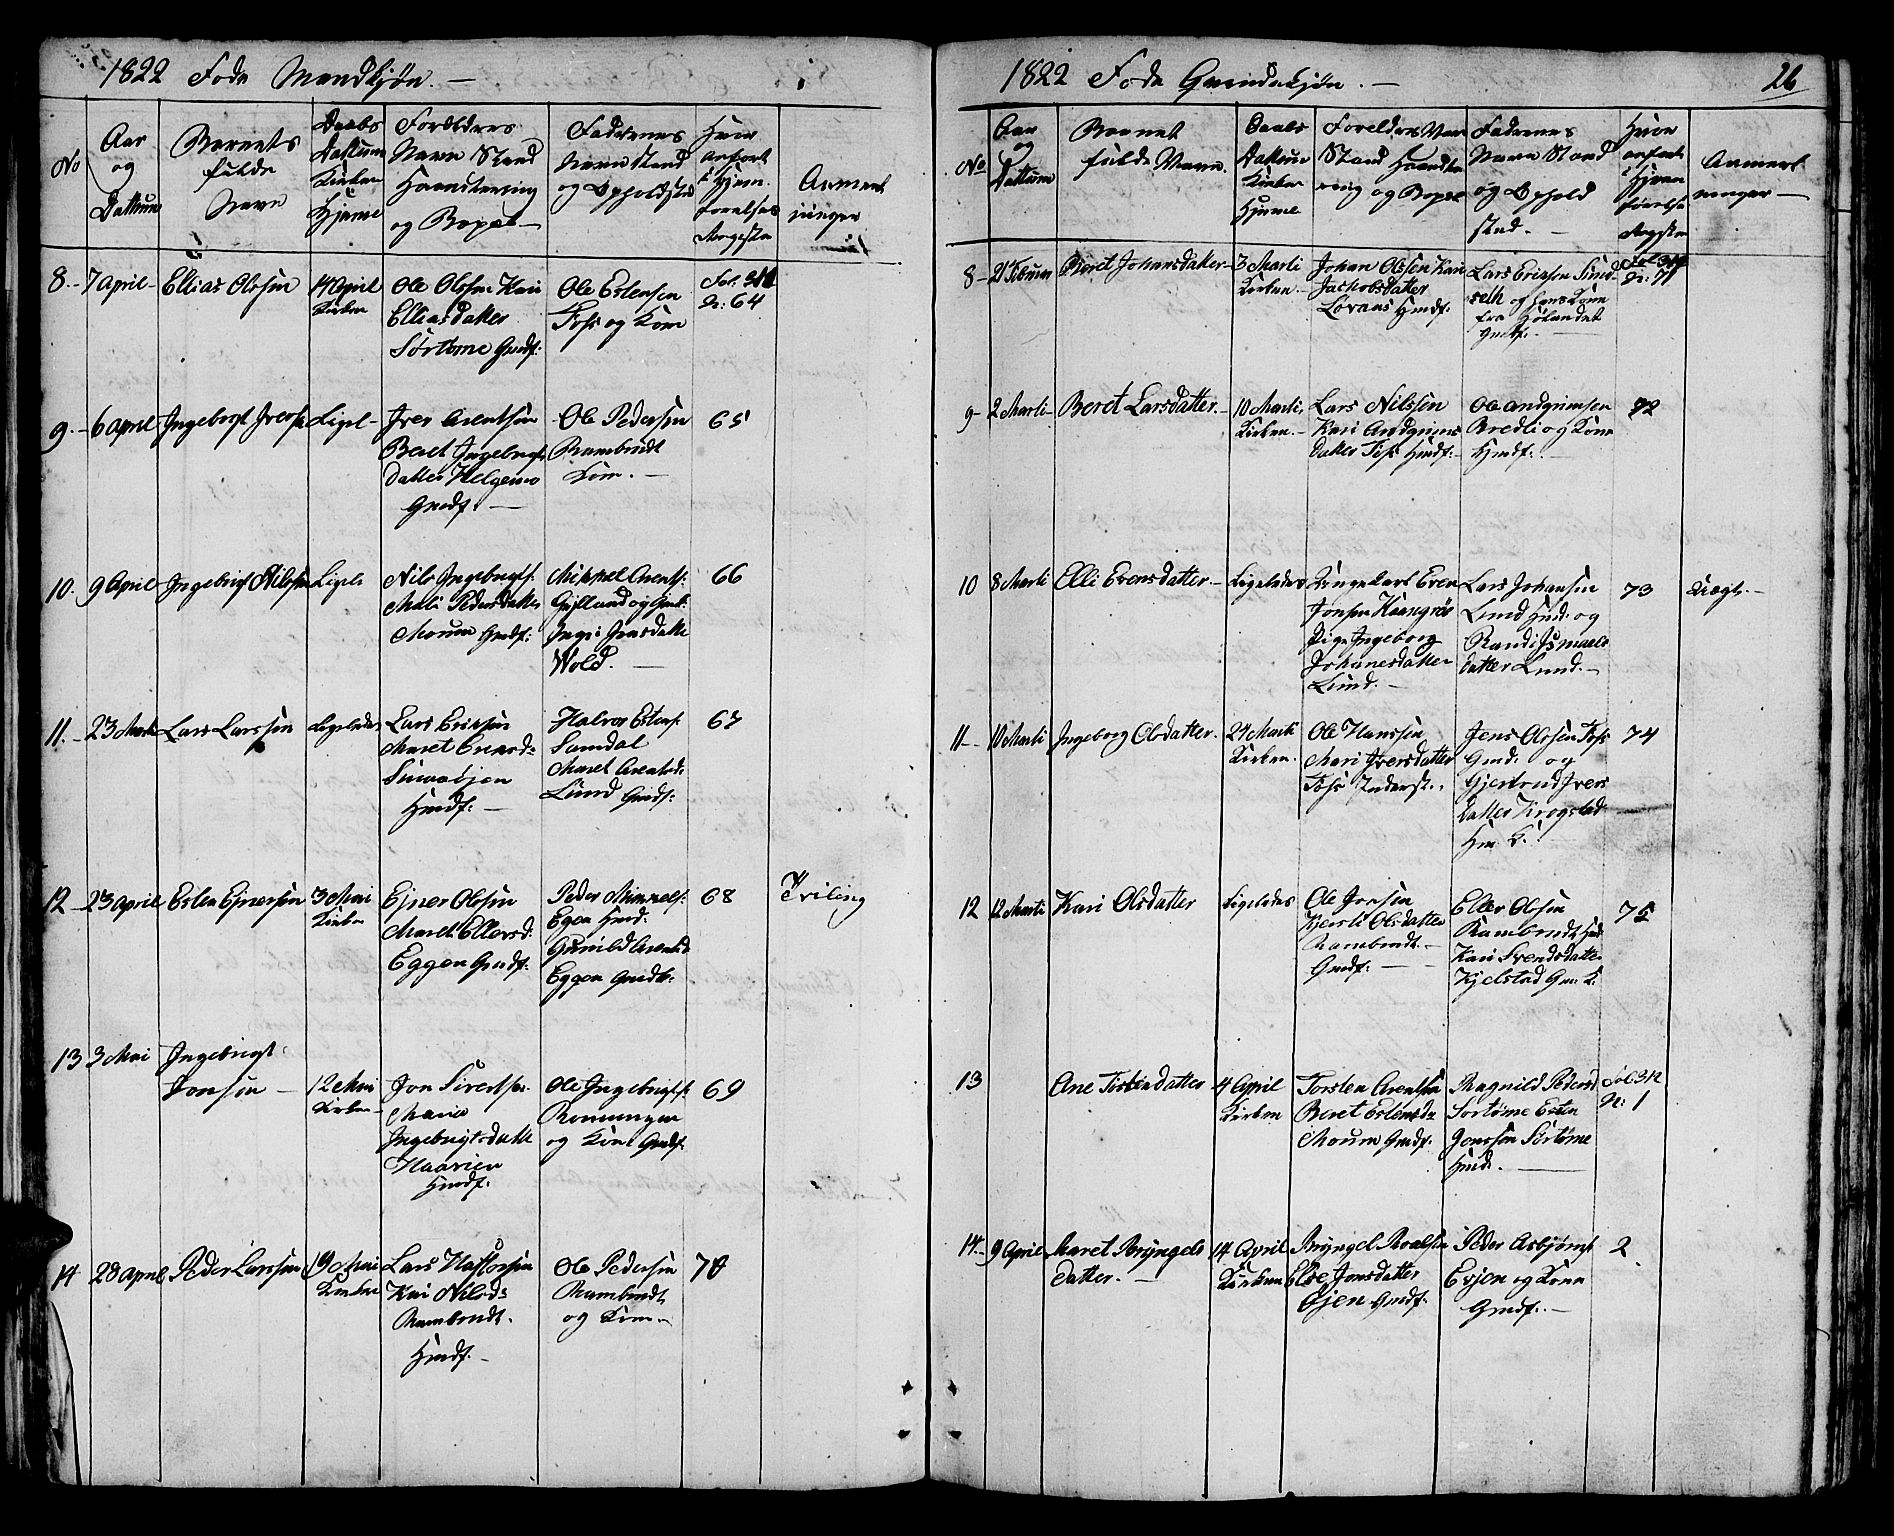 1822 Føde Mandkjøn. —
No
Aar
og
Dattum
Barnets
fulde
Navn
Daabs
Dattum
Kirken
Hjeme
Foreldres
Navn Stand
Haandtering
og Bopæl —
Faderenes
Navn Stand
og Opholdsted
Hvor
anført
i Hjem.
førelses
Regester
Anmerk
ninger
8. 7 April Ellias Olssøn 14 April Kirken
Ole Olssøn Kari
Elliasdatter
Sørtøme Gmdf:
Ole Estensen
Foss og Kone
Fol. 311
N: 64
9. 6 April Ingebrigt Iverss Ligel-
Iver Arentsøn
Beret Ingebrigts
datter Helgemo
Gmdf. —
Ole Pedersøn
Rambrodt
Kone. —
65
10. 9 April Ingebrigt Nilssøn Ligele
Nils Ingebrigts.
Mali Pedersdatter
Moum Gmdf:
Mikkel Arents:
Gylland og Gmk:
Ingri Jonsdatter
Wold. —
66
11. 23 Marti Lars Larssøn Ligeledes
Lars Erichsøn
Maret Arentsd:
Hmdf: —
Halvor Estens.
Samdal
Maret Arentsd:
Lund Gmdf:
67
12 23 April Esten Ejnersøn 3 Mai Kirken
Ejner Olssøn
Maret Ellersd:
Eggen Gmdf.
Peder Mikkels:
Egen Hmd:
Gunild Arentsd
Eggen Gmdtr:
68
Tviling
13 3 Mai Ingebrigt
Jonsøn — 12 Mai Kirken
Jon Sivertsøn
Maria
Ingebrigtsdatter
Haavien
Hmdf:
Ole Ingebrigts.
Rønningen
og Kone Gmdf.
69
14 28 April Peder Larssøn 19 Mai Kirken
Lars Haftorsøn
Kari Nilsd:
Rambrodt.
Hmdf. —
Ole Pedersøn
Rambrodt
og Kone —
70
1822 Føde Qvindekjøn. —
26
No
Aar
og
Dattum
Barnets
fulde Navn.
Daabs
Dattum
Kirken
Hjeme
Foreldres Navn
Stand Haandte
ring og Bopæl
Fadrenes
Navn Stand
og Ophold
sted. —
Hvor
anført
i Hjem
førelses
Regster
Anmerk
ninger —
8 - 21 Februar Beret Johansdatter - 3 Marti Kirken
Johan Olssen Kari
Jacobsdatter
Løvaas Hmdf:
Lars Erichsen Sund
seth og Hans Kone
fra Hølandet
Gmdf. —
Fol. 311
N: 71
9 - 2 Marti Beret Larsdatter. 10 Marti, Kirken. —
Lars Nilssøn
Kari Andgrims
datter Foss Hmdf: —
Ole Andgrimsen
Bredli og Kone
Hmdf. .
72
10 8 Marti Elli Evensdatter — Ligeledes
Ungekarl Even
Jonsen Kaangrøs
Pige Ingeborg
Johanesdatter
Lund. —
Lars Johansøn
Lund Hmd: og
Randi Ismaels
datter Lund. —
73
Uægte. —
11 — 10 Marti Ingeborg Olsdatter. 24 Marti Kirken.
Ole Hanssøn
Mari Iversdatter
Foss Inderst.
Jens Olssen Foss
Gmd. og
Gjertrud Ivers
datter Krogstad
Hm. K.
74
12 12 Marti Kari Olsdatter Ligeledes
Ole Jonsøn
Kjersti Olsdatter
Rambrodt. —
Gmdf: —
Eller Olsøn
Rambrodt Hmd
Kari Svendsdatter
Kjelstad Gm: K.
75
13 Ane Torstendatter 4 April Kirken
Torsten Arentsøn
Beret Estensda
Moum Gmdf.
Ragnild Pedersd
Sørtøme Esten
Jonssøn Sørtøme
Hmd. —
Fol. 312
N: 1
14. — 9 April Maret Bryngels
datter. — 14 April Kirken
Bryngel Roalsøn
Else Jonsdatter
Øien Gmdf.
Peder Asbjørns
Evjen og Kone
Gmdf: —
2